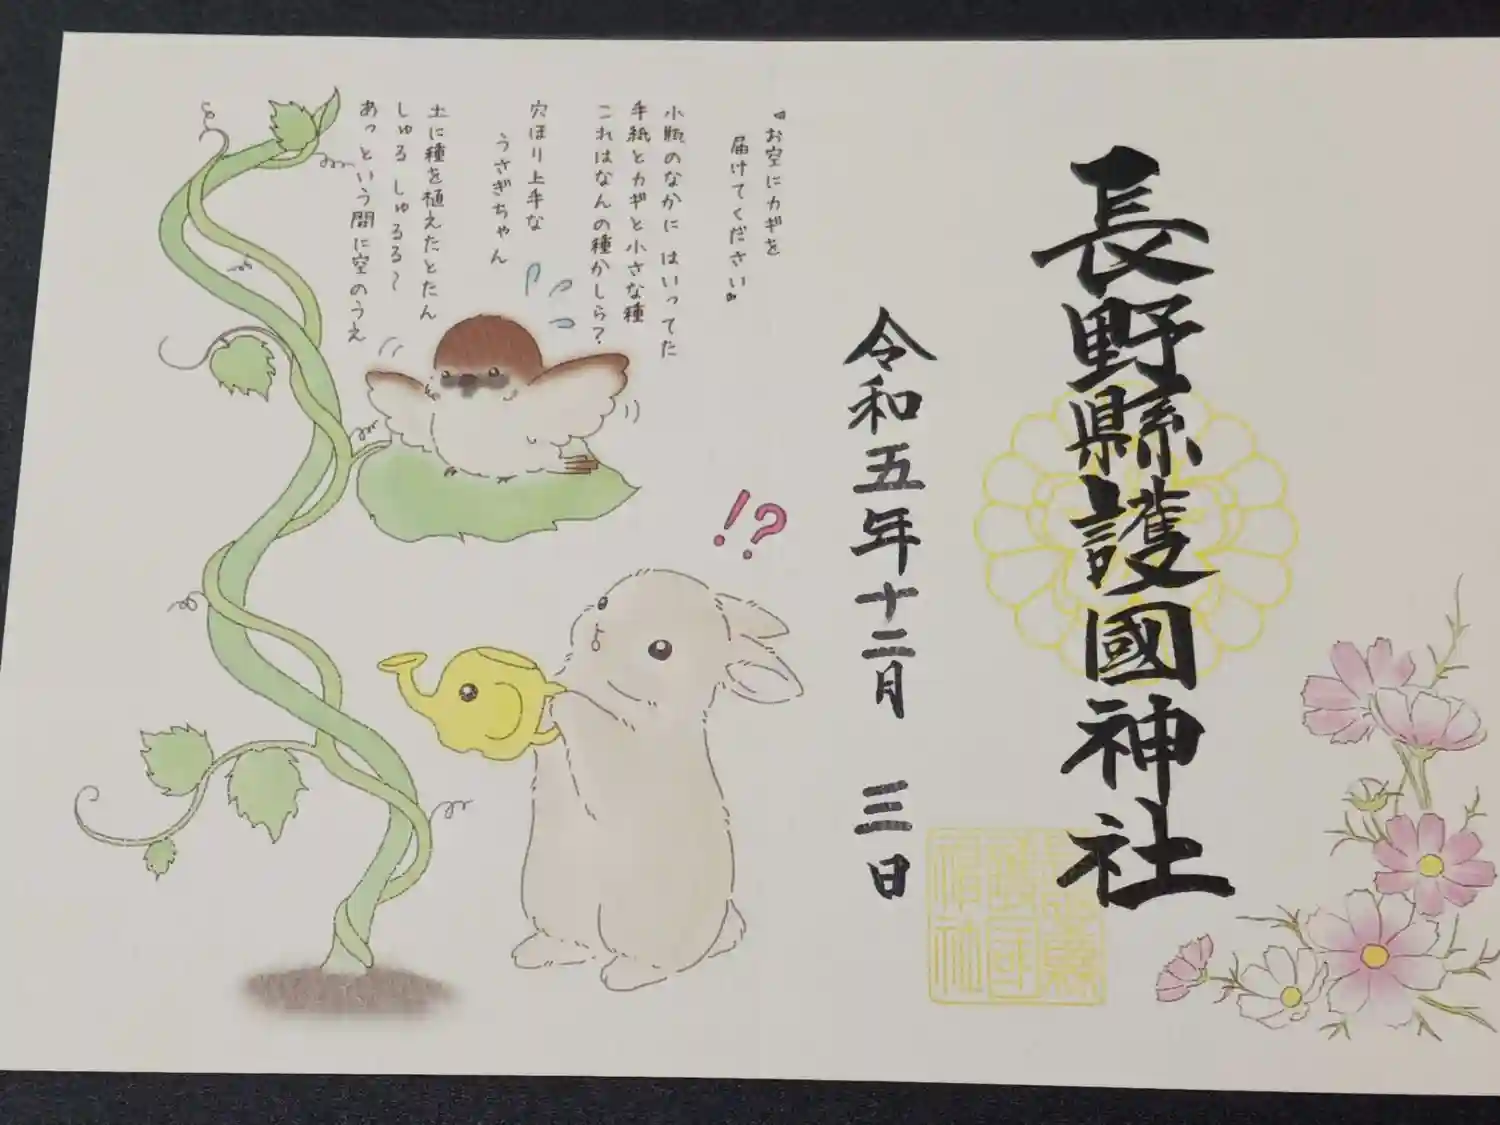 長野縣護國神社
令和五年十二月 三日
『お空にカギを
届けてください』
小瓶のなかに はいってた
手紙とカギと小さな種
これはなんの種かしら?
穴ほり上手な
うさぎちゃん
土に種を植えたとたん
しゅる しゅるる~
あっ という間に空のうえ
!?